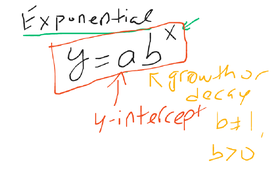 Exponential
y = ab^x
growth or
decay
y-intercept
b≠1,
b>0